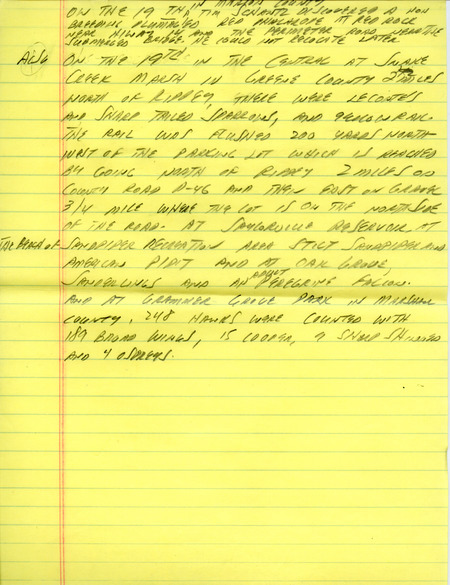 IN MARION COUNTY
ON THE 19TH, TIM SCHANTZ DISCOVERED A NON
BREEDING PLUMAGED RED PHALAROPE AT RED ROCK
NEAR HIWAY 14 AND THE PERIMETER ROAD NEAR THE
SUBMERGED BRIDGE HE COULD NOT RELOCATE LATER
ALSO ON THE 19TH IN THE CENTRAL AT SNAKE
CREEK MARSH IN GREENE COUNTY 2 MILES
NORTH OF RIPPEY THERE WERE LECONTES
AND SHARP TAILED SPARROWS, AND YELLOW RAIL.
THE RAIL WAS FLUSHED 200 YARDS NORTH-
WEST OF THE PARKING LOT WHICH IS REACHED
BY GOING NORTH OF RIPPEY 2 MILES ON
COUNTY ROAD P-46 AND THEN EAST ON GRAVEL
3/4 MILE WHERE THE LOT IS ON THE NORTH SIDE
OF THE ROAD. AT SAYLORVILLE RESERVOIR AT
THE BEACH OF SANDPIPER RECREATION AREA STILT SANDPIPER AND
AMERICAN PIPIT AND AT OAK GROVE,
SANDERLINGS AND AN ADULT PEREGRINE FALCON.
AND AT GRAMMER GROVE PARK IN MARSHALL
COUNTY, 248 HAWKS WERE COUNTED WITH
189 BROAD WINGS, 15 COOPER, 9 SHARP SHINNED
AND 4 OSPREYS.